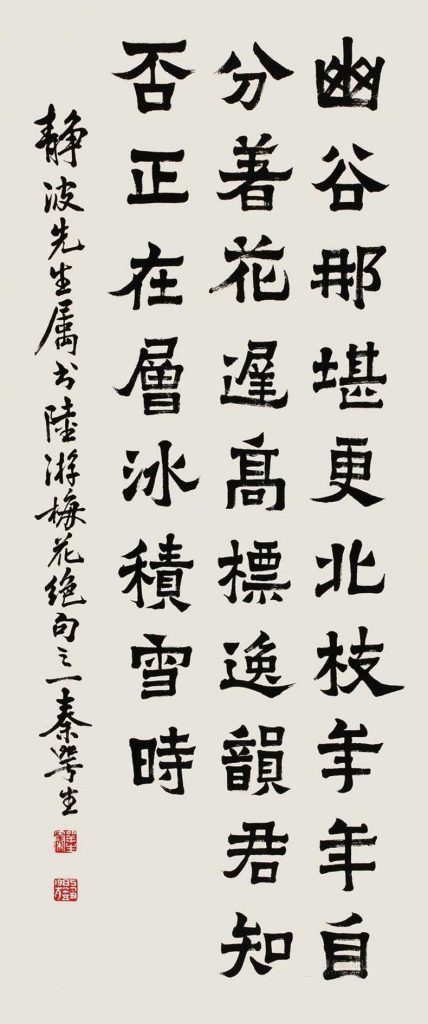 幽谷那堪更北枝年年自
分著花遲高標逸韻君知
否正在層冰積雪時
静波先生属书陸游梅花绝句之一秦咢生